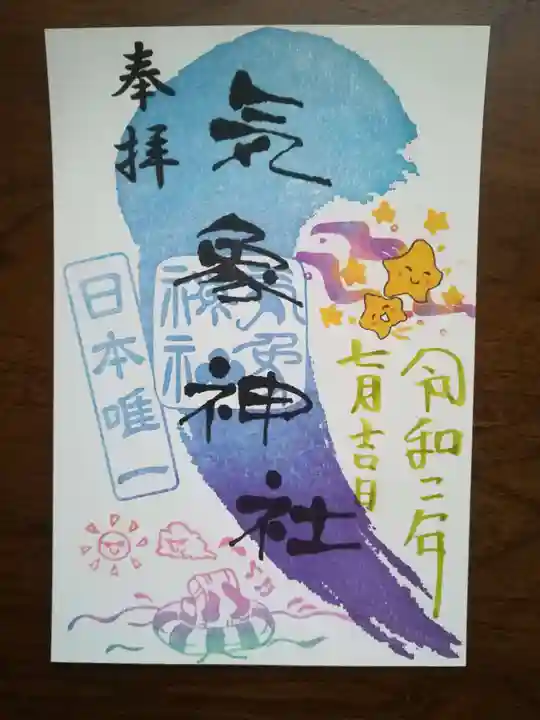 奉拝
気象神社
気象
神社
日本唯一
令和二年
七月吉日